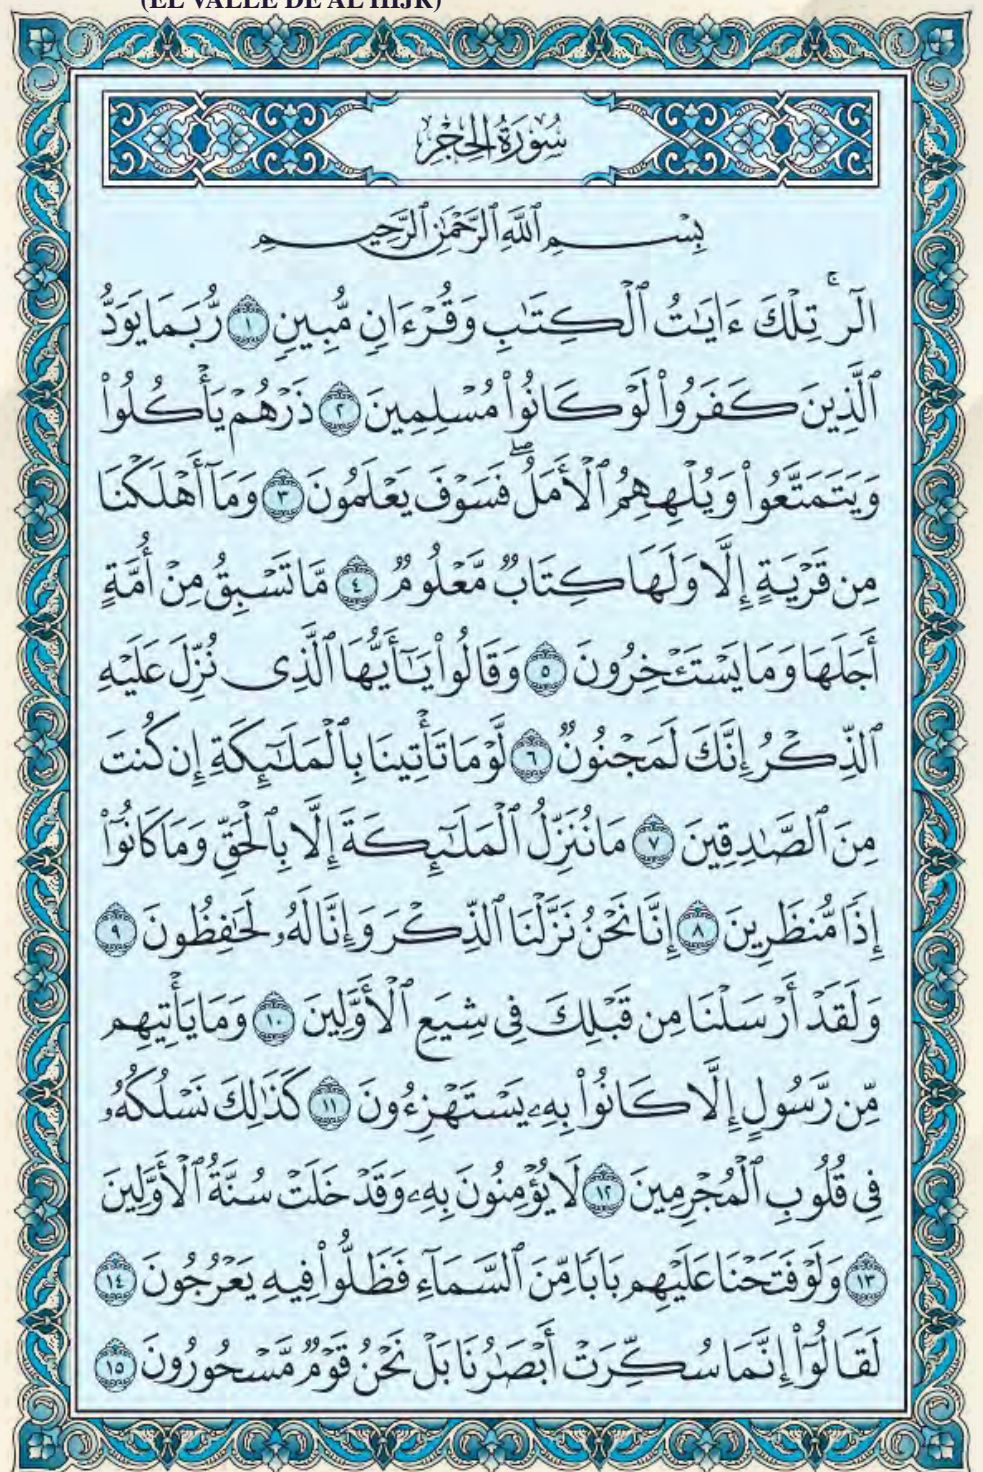 (EL VALLE DE AL HIJR)
سُورَةُ الحِجْرِ
بِسْمِ ٱللَّهِ ٱلرَّحْمَٰنِ ٱلرَّحِيمِ
الٓرۚ تِلْكَ ءَايَٰتُ ٱلْكِتَٰبِ وَقُرْءَانٖ مُّبِينٖ ١ رُّبَمَا يَوَدُّ
ٱلَّذِينَ كَفَرُوا۟ لَوْ كَانُوا۟ مُسْلِمِينَ ٢ ذَرْهُمْ يَأْكُلُوا۟
وَيَتَمَتَّعُوا۟ وَيُلْهِهِمُ ٱلْأَمَلُۖ فَسَوْفَ يَعْلَمُونَ ٣ وَمَآ أَهْلَكْنَا
مِن قَرْيَةٍ إِلَّا وَلَهَا كِتَابٞ مَّعْلُومٞ ٤ مَّا تَسْبِقُ مِنْ أُمَّةٍ
أَجَلَهَا وَمَا يَسْتَـْٔخِرُونَ ٥ وَقَالُوا۟ يَٰٓأَيُّهَا ٱلَّذِى نُزِّلَ عَلَيْهِ
ٱلذِّكْرُ إِنَّكَ لَمَجْنُونٞ ٦ لَّوْمَا تَأْتِينَا بِٱلْمَلَٰٓئِكَةِ إِن كُنتَ
مِنَ ٱلصَّٰدِقِينَ ٧ مَا نُنَزِّلُ ٱلْمَلَٰٓئِكَةَ إِلَّا بِٱلْحَقِّ وَمَا كَانُوٓا۟
إِذٗا مُّنظَرِينَ ٨ إِنَّا نَحْنُ نَزَّلْنَا ٱلذِّكْرَ وَإِنَّا لَهُۥ لَحَٰفِظُونَ ٩
وَلَقَدْ أَرْسَلْنَا مِن قَبْلِكَ فِى شِيَعِ ٱلْأَوَّلِينَ ١٠ وَمَا يَأْتِيهِم
مِّن رَّسُولٍ إِلَّا كَانُوا۟ بِهِۦ يَسْتَهْزِءُونَ ١١ كَذَٰلِكَ نَسْلُكُهُۥ
فِى قُلُوبِ ٱلْمُجْرِمِينَ ١٢ لَا يُؤْمِنُونَ بِهِۦ وَقَدْ خَلَتْ سُنَّةُ ٱلْأَوَّلِينَ
١٣ وَلَوْ فَتَحْنَا عَلَيْهِم بَابٗا مِّنَ ٱلسَّمَآءِ فَظَلُّوا۟ فِيهِ يَعْرُجُونَ ١٤
لَقَالُوٓا۟ إِنَّمَا سُكِّرَتْ أَبْصَٰرُنَا بَلْ نَحْنُ قَوْمٞ مَّسْحُورُونَ ١٥